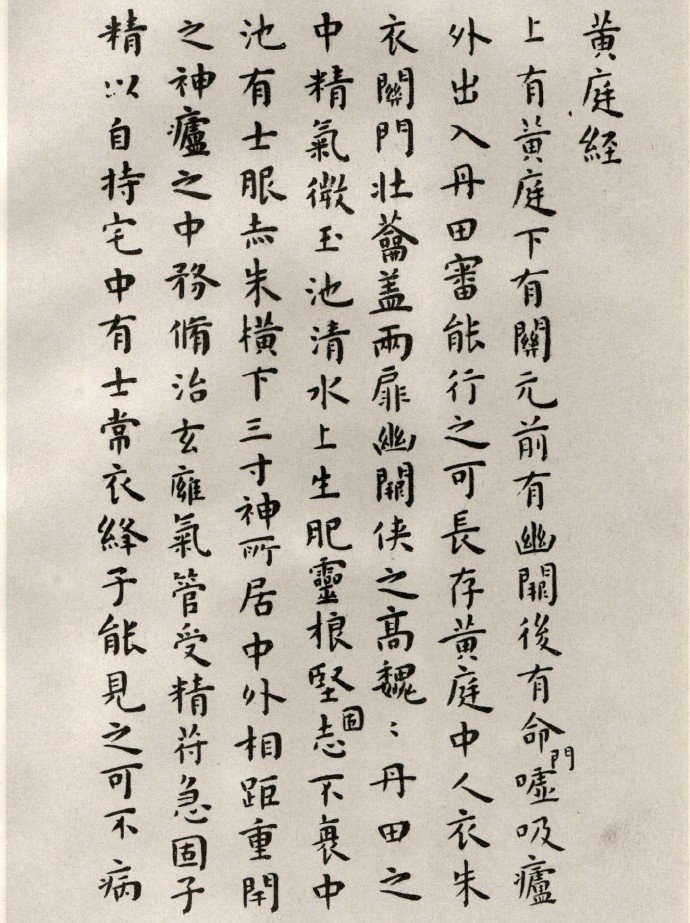 黃庭経
上有黃庭下有關元前有幽闕後有命門噓吸廬
外出入丹田審能行之可長存黃庭中人衣朱
衣關門壮蘥盖兩扉幽闕俠之高魏〻丹田之
中精氣微玉池清水上生肥靈根堅固志不衰中
池有士服赤朱橫下三寸神所居中外相距重閇
之神廬之中務脩治玄廱氣管受精苻急固子
精以自持宅中有士常衣絳子能見之可不病